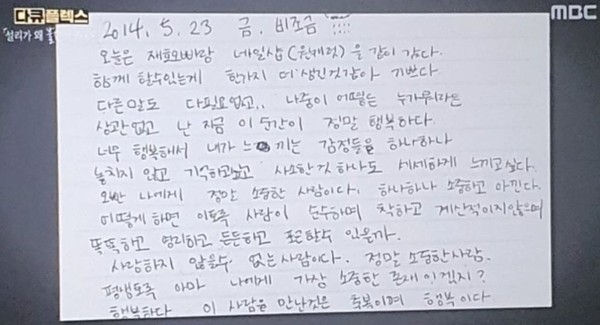 다큐플렉스
설리가 왜 불
MBC
2014. 5. 23 금. 비조금
오늘은 재효오빠랑 네일샵 (원캐럿)을 같이 갔다.
함께 할수있는게 한가지 더 생긴것같아 기쁘다
다른말도 다필요없고,, 나중이 어떻든 누가뭐라든
상관없고 난 지금 이 순간이 정말 행복하다.
너무 행복해서 내가 느끼는 감정들을 하나하나
놓치지 않고 기억하고싶고 사소한것 하나도 세세하게 느끼고싶다.
오빤 나에게 정말 소중한 사람이다. 하나하나 소중하고 아낀다.
어떻게 하면 이토록 사람이 순수하며 착하고 계산적이지않으며
똑똑하고 영리하고 든든하고 포근할수 있을까.
사랑하지 않을수 없는사람이다. 정말 소중한사람.
평생토록 아마 나에게 가장 소중한 존재이겠지?
행복하다 이 사람을 만난것은 축복이며 행복이다